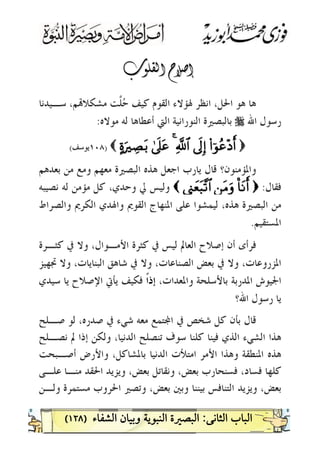 فوزى محمد أبوزيد
أمراض الأمة وبصيرة النبوة
إصلاح القلوب
ها هو الحل، انظر لهؤلاء القوم كيف حُلَّت مشكلاتهم، ســـيدنا
رسول الله ﷺ بالبصيرة النورانية التي أعطاها له مولاه:
﴿ أَدْعُوٓا۟ إِلَى ٱللَّهِ ۚ عَلَىٰ بَصِيرَةٍ ﴾ (١٠٨يوسف)
والمؤمنون؟ قال يارب اجعل هذه البصيرة معهم ومع من بعدهم
فقال: ﴿ أَنَا۠ وَمَنِ ٱتَّبَعَنِى ﴾ وليس لي وحدي، كل مؤمن له نصيبه
من البصيرة هذه، ليمشوا على المنهاج القويم والهدي الكريم والصراط
المستقيم.
فرأى أن إصلاح العالم ليس في كثرة الأمـــوال، ولا في كثـــرة
المزروعات، ولا في بعض الصناعات، ولا في شاهق البنايات، ولا تجهيز
الجيوش المدربة بالأسلحة والمعدات، إذاً فكيف يأتي الإصلاح يا سيدي
يا رسول الله؟
قال بأن كل شخص في المجتمع معه شيء في صدره، لو صـــلح
هذا الشيء الذي فينا كلنا سوف تنصلح الدنيا، ولكن إذا لم نصـــلح
هذه المنطقة وهذا الأمر امتلأت الدنيا بالمشاكل، والأرض أصـــبحت
كلها فساد، فسنحارب بعض، ونقاتل بعض، ويزيد الحقد منـــا علـــى
بعض، ويزيد التنافس بيننا وبين بعض، وتصير الحروب مستمرة ولـــن
الباب الثانى: البصيرة النبوية وبيان الشفاء (١٣٨)